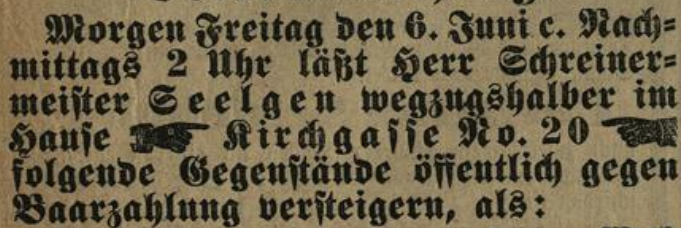 Morgen Freitag den 6. Juni c. Nach=
mittags 2 Uhr läßt Herr Schreiner=
meister Seelgen wegzugshalber im
Hause ☛ Kirchgasse No. 20 ☚
folgende Gegenstände öffentlich gegen
Baarzahlung versteigern, als: